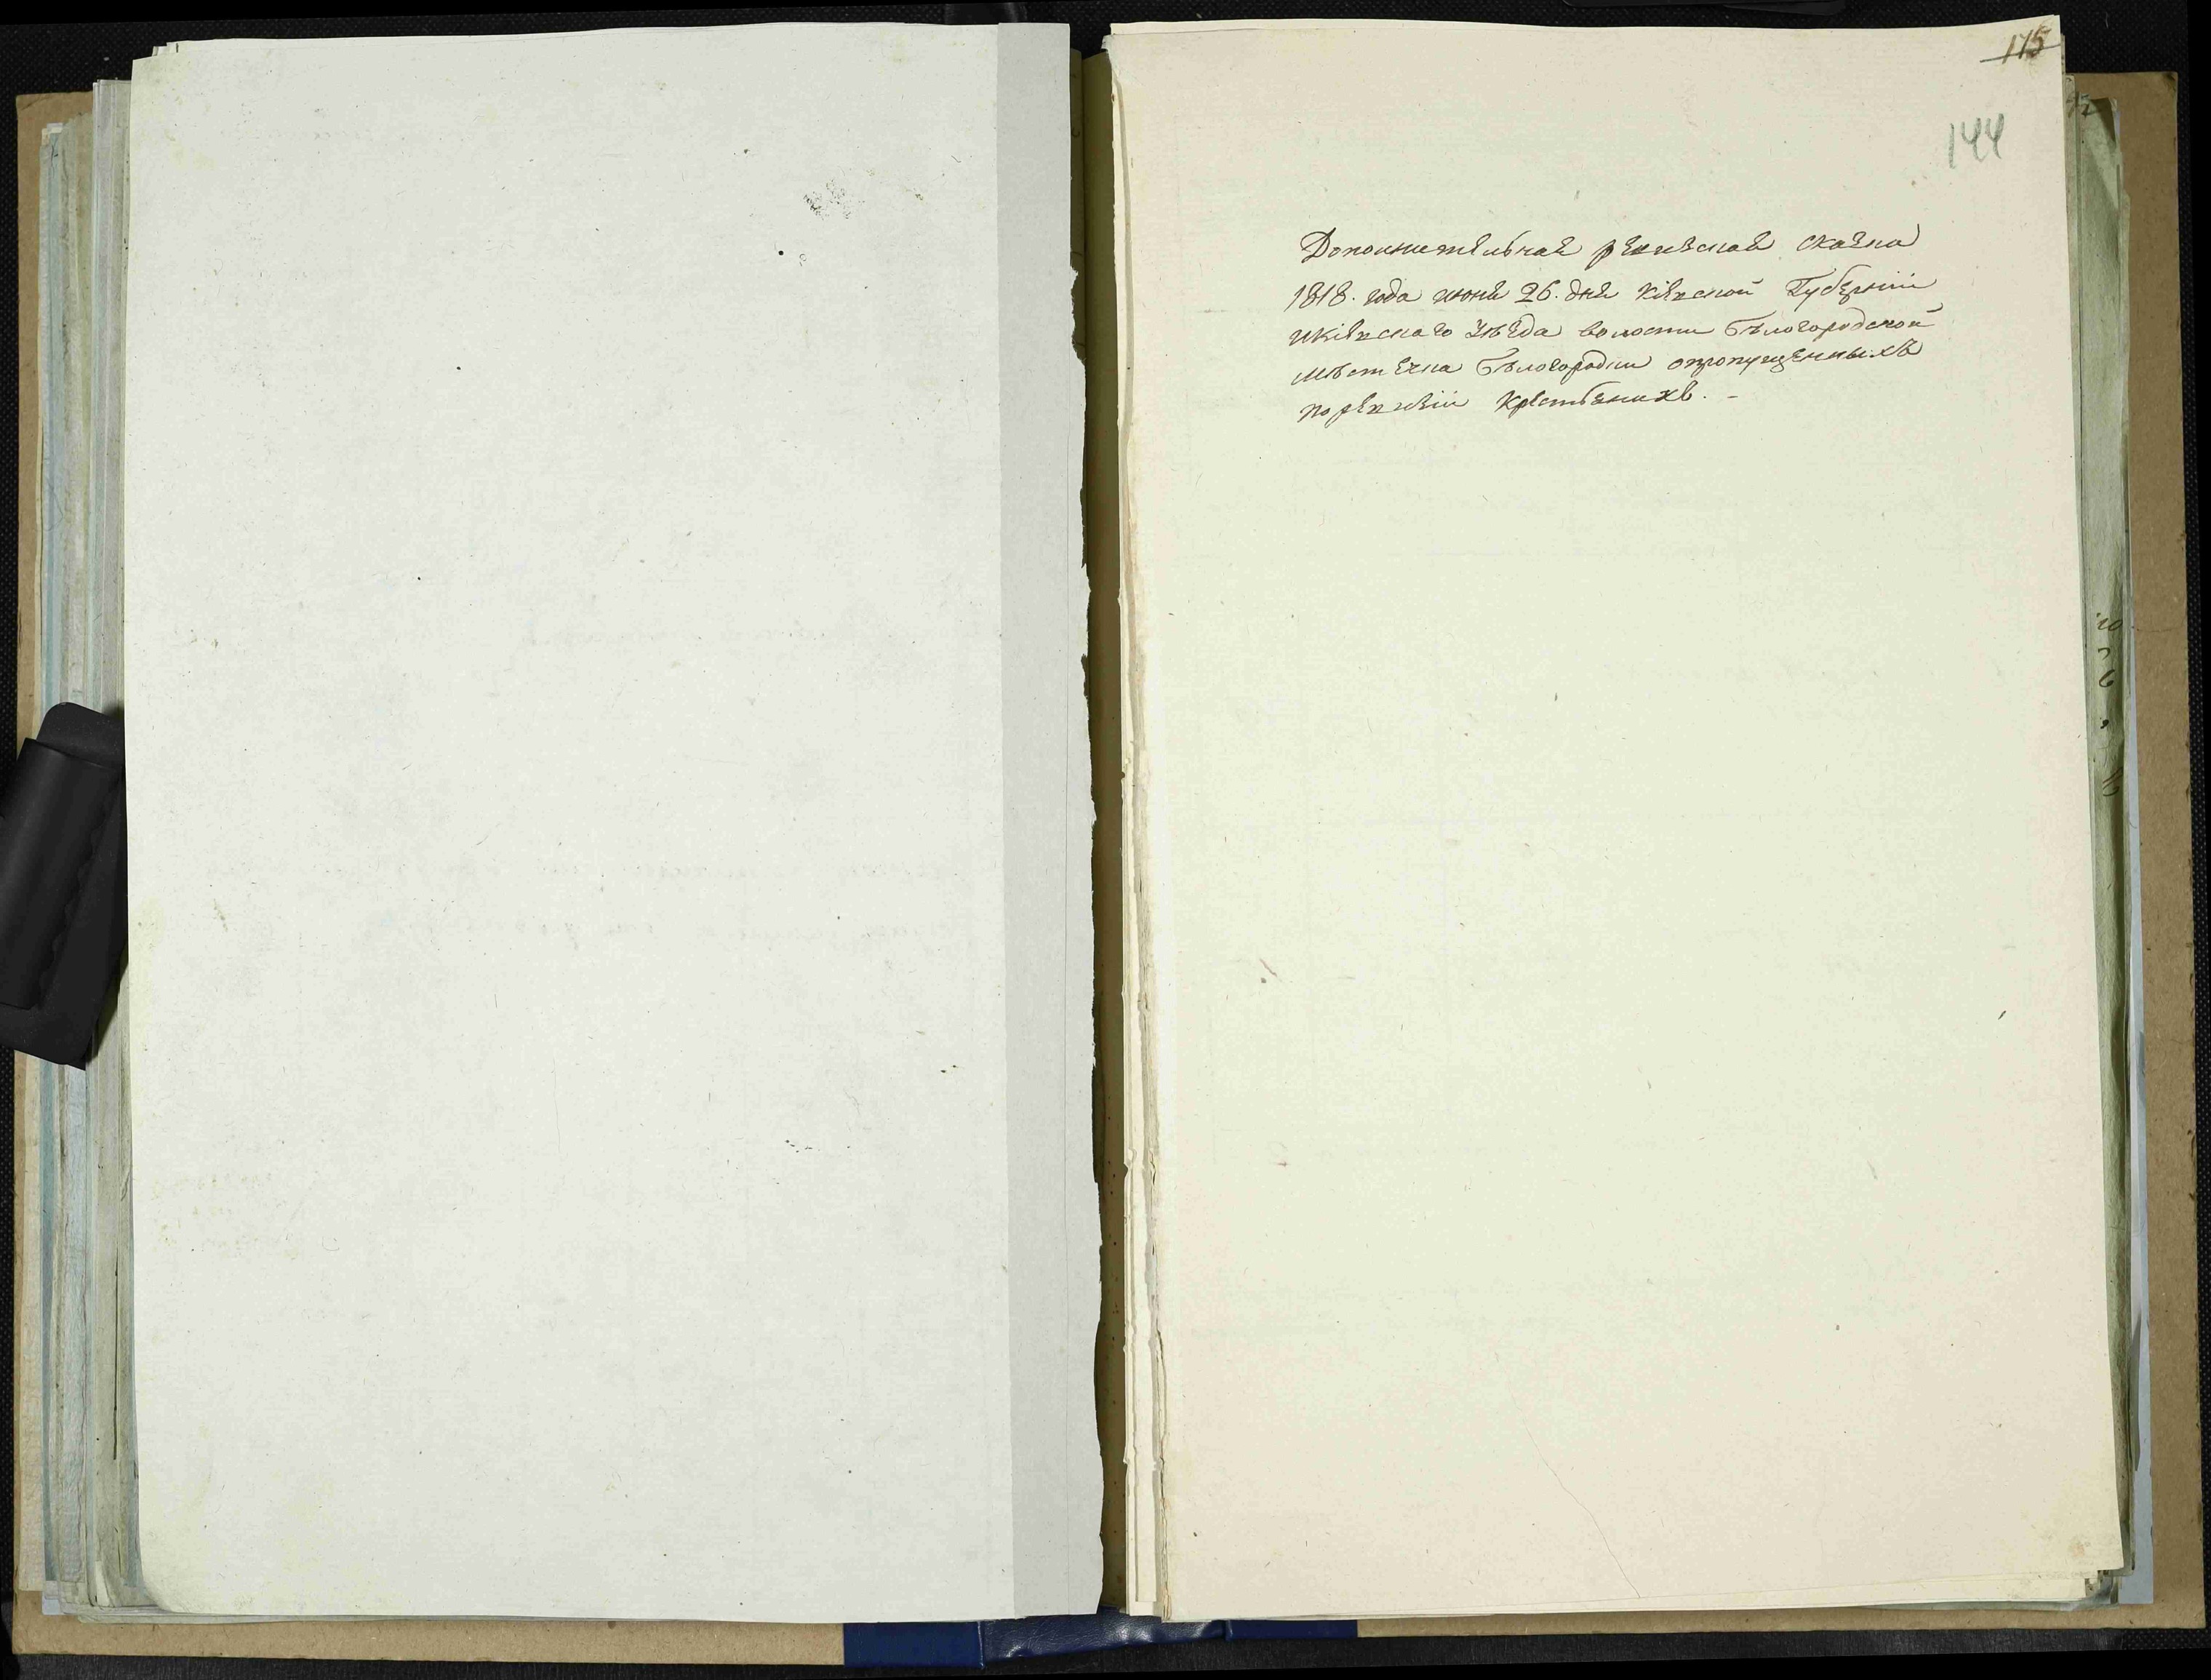 175
144
Дополнительная ревизская сказка
1818. года июня 26. дня Кіевской Губерніи
икіевскаго уѣзда волости Бѣлогородской
мѣстечка Бѣлогородки опропущенныхъ
поревизіи Крестьянихъ. -